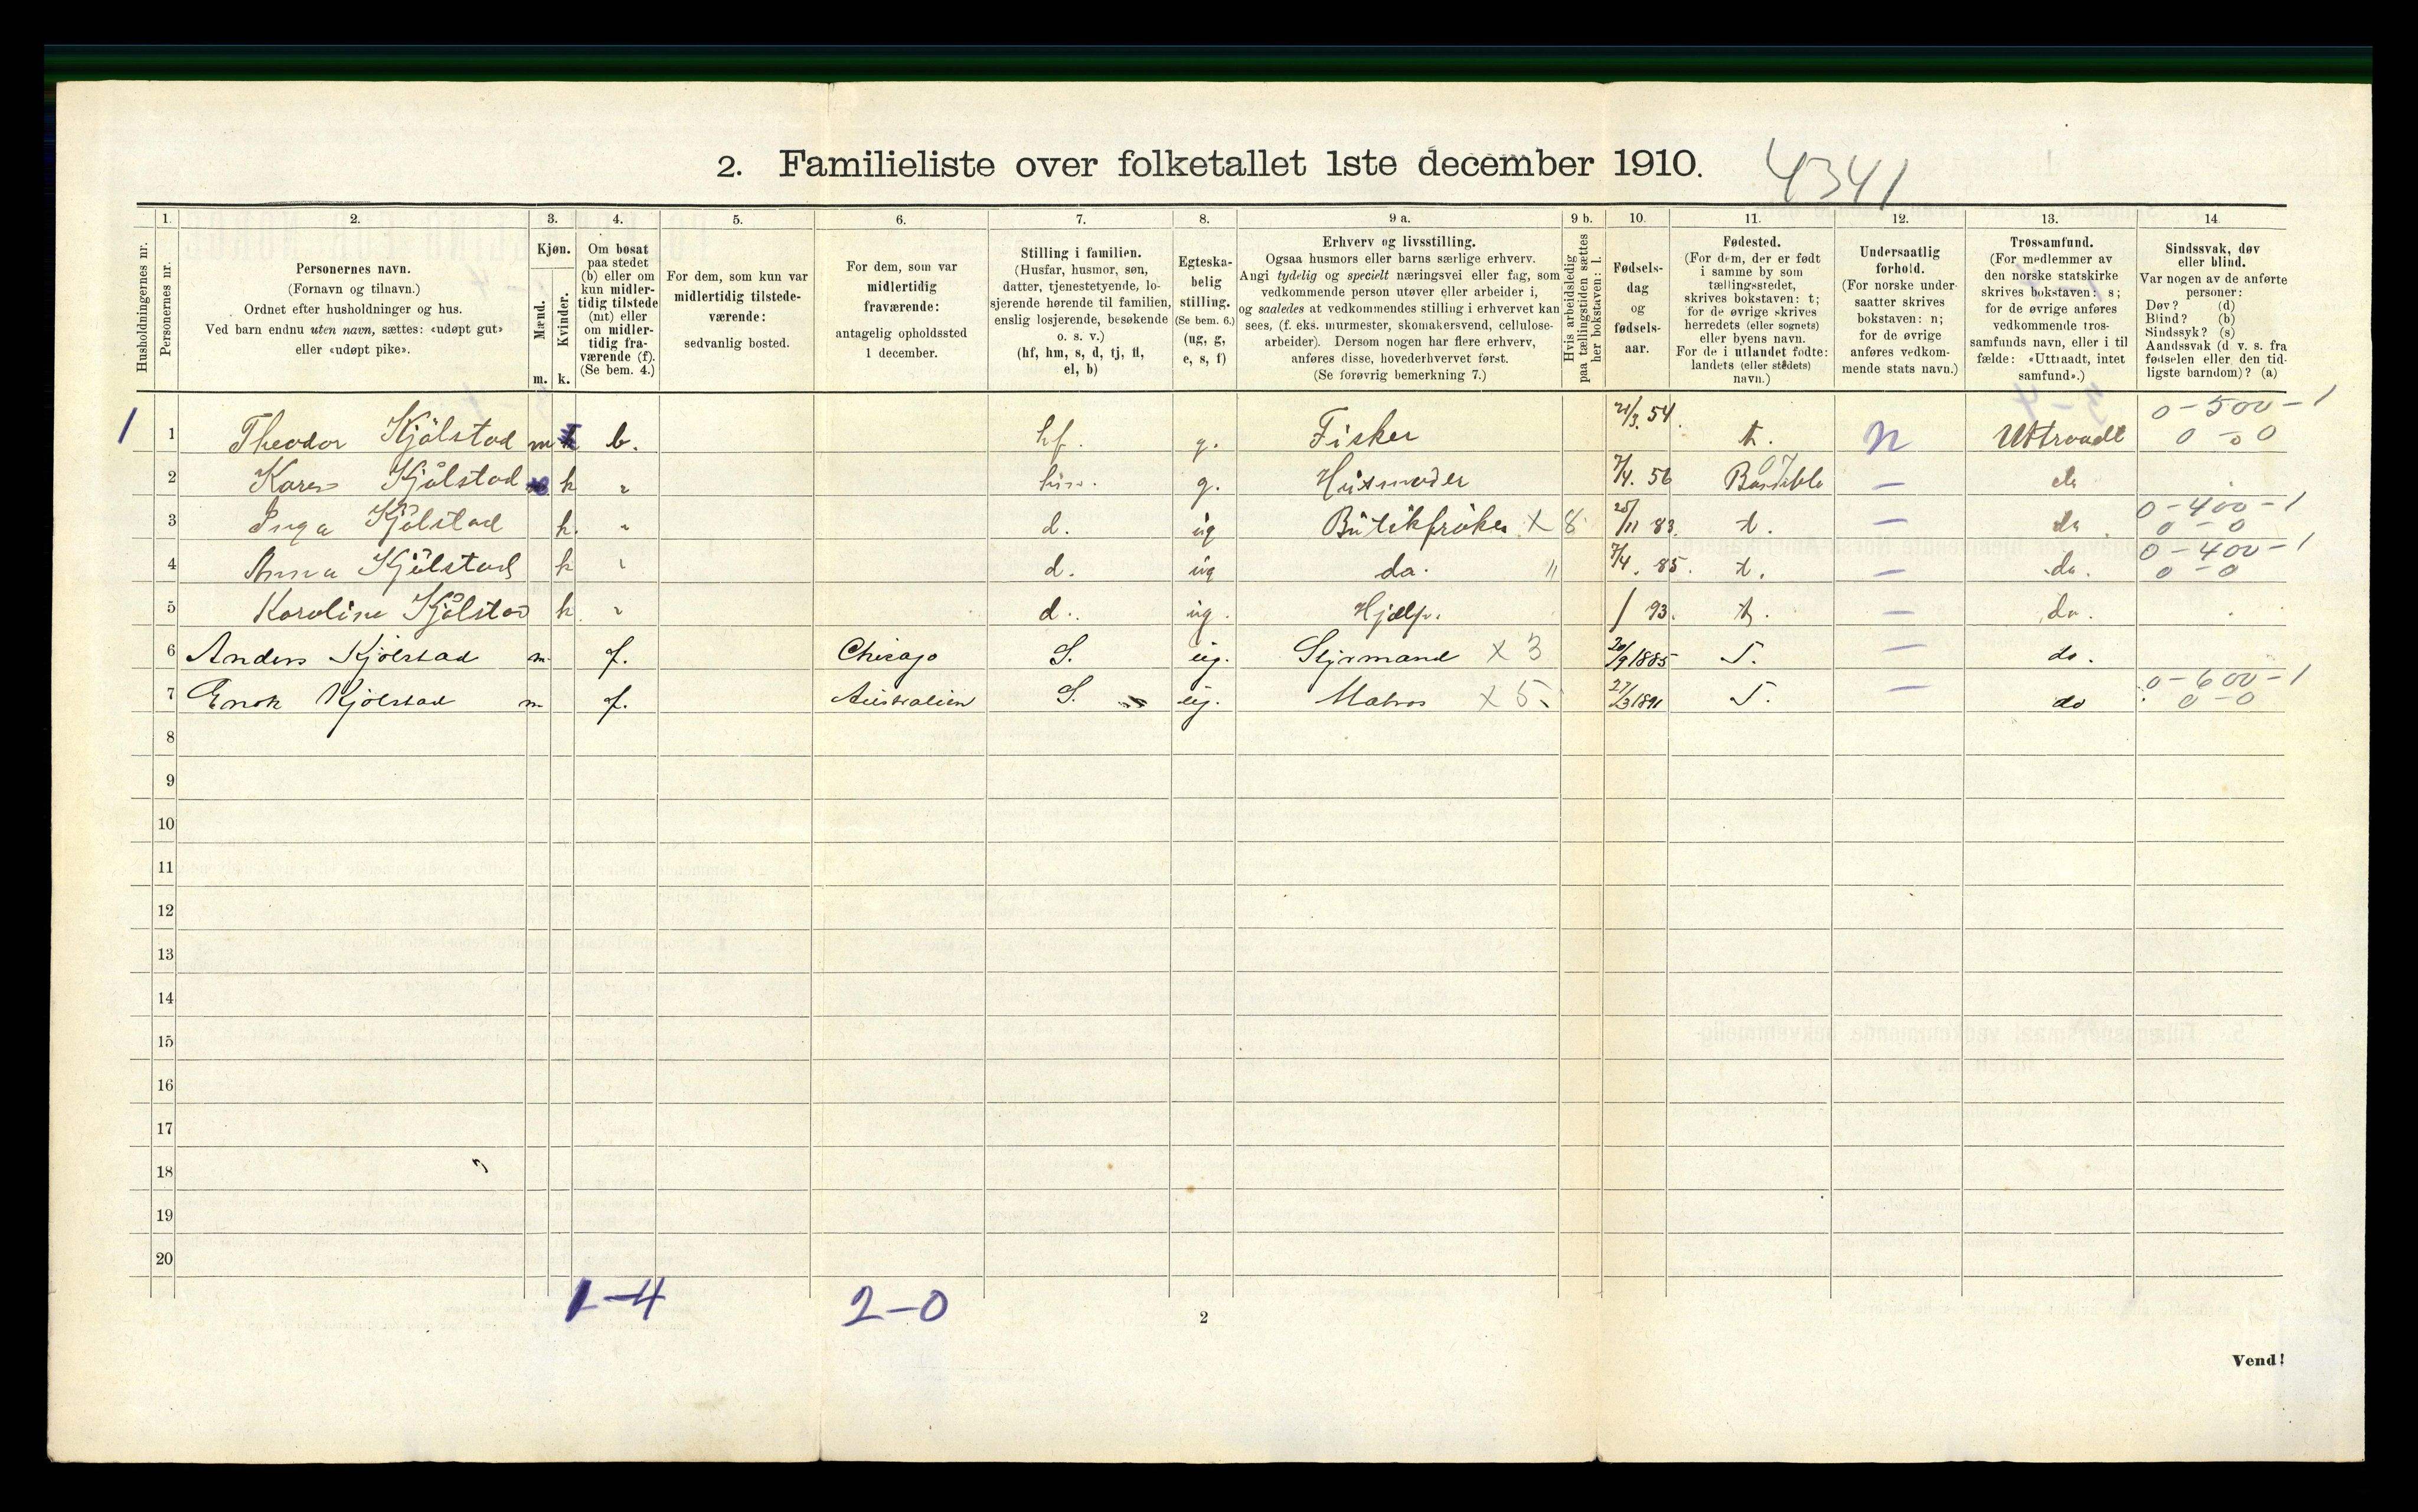 2. Familieliste over folketallet 1ste december 1910.
4341
1. 2. 3. 4. 5. 6. 7. 8. 9 a. 9 b. 10. 11. 12. 13. 14
Husholdningernes nr.
Personernes nr.
Personernes navn.
(Fornavn og tilnavn.)
Ordnet efter husholdninger og hus.
Ved barn endnu uten navn, sættes: «udøpt gut»
eller «udøpt pike».
Kjøn.
Mænd.
Kvinder.
m. k.
Om bosat
paa stedet
(b) eller om
kun midler-
tidig tilstede
(mt) eller
om midler-
tidig fra-
værende (f).
(Se bem. 4.)
For dem, som kun var
midlertidig tilstede-
værende:
sedvanlig bosted.
For dem, som var
midlertidig
fraværende:
antagelig opholdssted
1 december.
Stilling i familien.
(Husfar, husmor, søn,
datter, tjenestetyende, lo-
sjerende hørende til familien,
enslig losjerende, besøkende
o. s. v.)
(hf, hm, s, d, tj, fl,
el, b)
Egteska-
belig
stilling.
(Se bem. 6.)
(ug, g,
e, s, f)
Erhverv og livsstilling.
Ogsaa husmors eller barns særlige erhverv.
Angi tydelig og specielt næringsvei eller fag, som
vedkommende person utøver eller arbeider i,
og saaledes at vedkommendes stilling i erhvervet kan
sees, (f. eks. murmester, skomakersvend, cellulose-
arbeider). Dersom nogen har flere erhverv,
anføres disse, hovederhvervet først.
(Se forøvrig bemerkning 7.)
Hvis arbeidsledig
paa tællingstiden sættes
her bokstaven: l.
Fødsels-
dag
og
fødsels-
aar.
Fødested.
(For dem, der er født
i samme by som
tællingsstedet,
skrives bokstaven: t;
for de øvrige skrives
herredets (eller sognets)
eller byens navn.
For de i utlandet fødte:
landets (eller stedets)
navn.)
Undersaatlig
forhold.
(For norske under-
saatter skrives
bokstaven: n;
for de øvrige
anføres vedkom-
mende stats navn.)
Trossamfund.
(For medlemmer av
den norske statskirke
skrives bokstaven: s;
for de øvrige anføres
vedkommende tros-
samfunds navn, eller i til
fælde: «Uttraadt, intet
samfund».)
Sindssvak, døv
eller blind.
Var nogen av de anførte
personer:
Døv? (d)
Blind? (b)
Sindssyk? (s)
Aandssvak (d. v. s. fra
fødselen eller den tid-
ligste barndom)? (a)
0-500-1
1 1 Theodor Kjölstad m b. hf. g. Fisker 21/3. 54. t. n Uttraadt 0-0
2 Karen Kjölstad k " hm. g. Husmoder 7/4. 56 Bamble — do
0-400-1
3 Inga Kjölstad k. " d. ug Butikfröken X 8 25/11 83. t. — do 0-0
0-400-1
4 Anna Kjölstad k " d. ug do. " 7/4. 85. t. — do. 0-0
5 Karoline Kjölstad k. " d. ug. Hjælp. / 93. t. — do.
6 Anders Kjölstad m f. Chicago S. ug. Styrmand X 3 20/9 1885 T. — do.
0-600-1
7 Enok Kjölstad m f. Australien S. ug. Matros X 5 27/3 1891 T. — do 0-0
8
9
10
11
12
13
14
15
16
17
18
19
20
1-4 2-0
2
Vend!